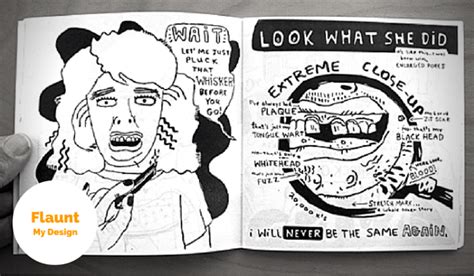 WAIT
LET ME JUST
PLUCK
THAT
WHISKER
BEFORE
YOU
GO!
LOOK WHAT SHE DID
EXTREME CLOSE-UP
I've always had
PLAQUE
that's just my
TONGUE WART
WHITEHEAD
FUZZ
ZIT SCAR
no-that's my
BLACK HEAD
BLOOD!
STRETCH MARK
20,000 X's
i WILL NEVER BE THE SAME AGAIN.
Flaunt
My Design